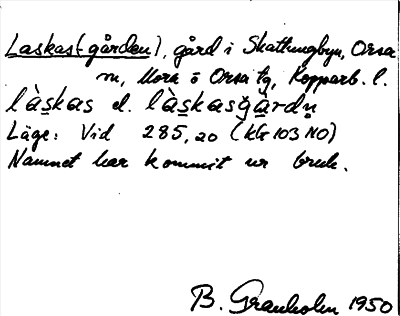 Laskas(-gården), gård i Skattungbyn, Orsa
sn, Mora o Orsa tg, Kopparb. l.
làskas el. làskasgàrdn̥
Läge: Vid 285,20 (kbl 103 NO)
Namnet har kommit ur bruk.
B. Granholm 1950